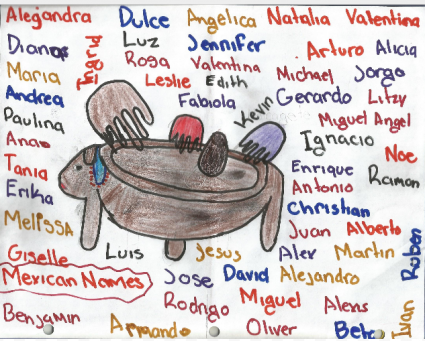 Alejandra Dulce Angelica Natalia Valentina
Diana Ingrid Luz Jennifer Arturo Alicia
Maria Rosa Valentina Michael Jorge
Andrea Leslie Edith Gerardo Litzy
Paulina Fabiola Kevin Miguel Angel
Ana Ignacio Noe
Tania Enrique Ramon
Erika Antonio
Melissa Christian
Juan Alberto
Giselle Luis Jesus Alex Martin Ruben
Mexican Names Jose David Alejandro
Rodrigo Miguel Alexis
Benjamin Armando Oliver Beto Ivan